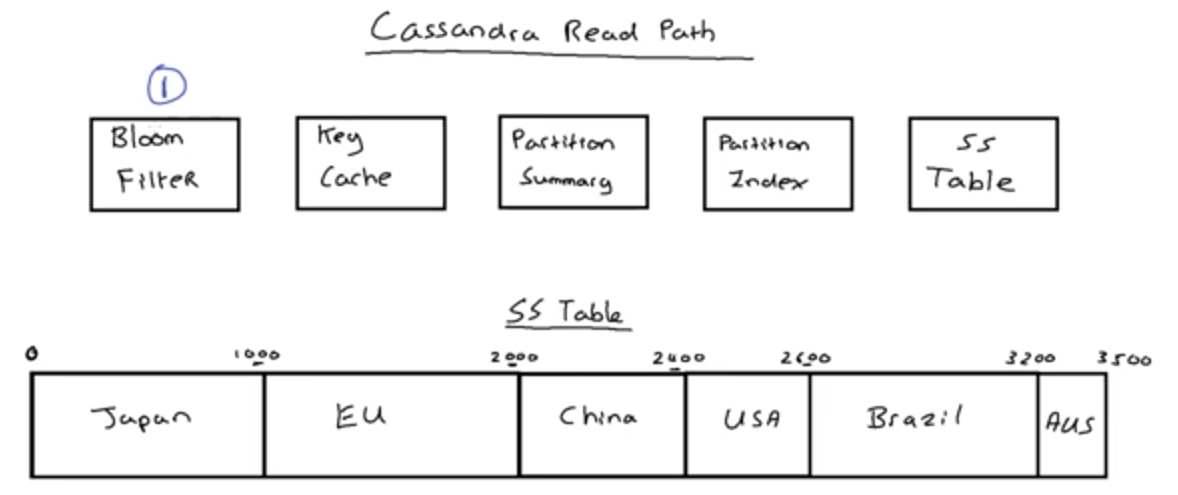 Cassandra Read Path
1
Bloom
Filter
Key
Cache
Partition
Summary
Partition
Index
SS
Table
SS Table
0 1000 2000 2400 2600 3200 3500
Japan EU China USA Brazil AUS